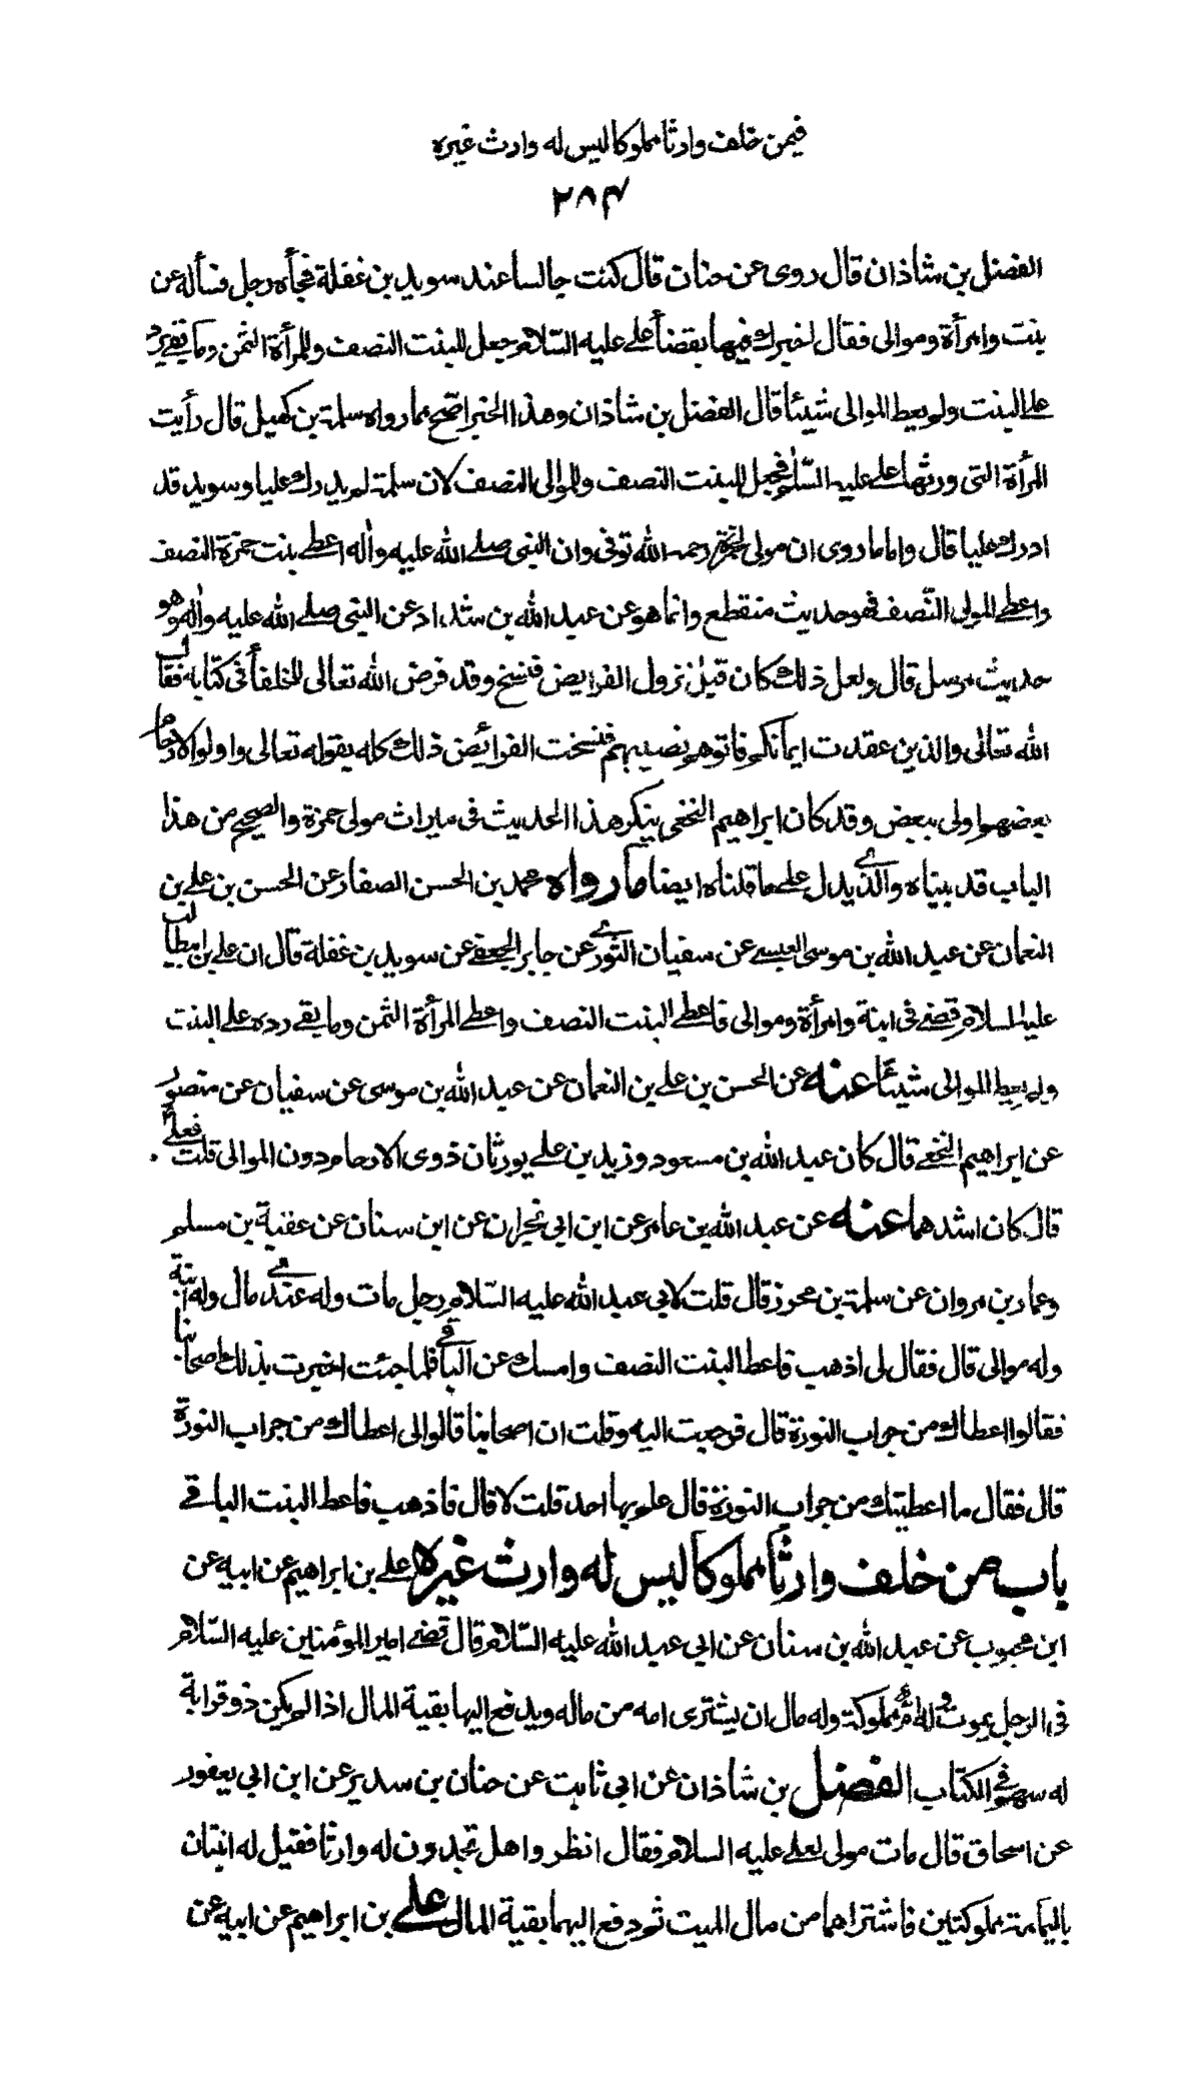 فيمن خلف وارثا مملوكا ليس له وارث غيره
٢٨٤
الفضل بن شاذان قال روى عن حنان قال كنت جالسا عند سويد بن غفلة فجأه رجل فسأله عن
بنت وامرأة وموالى فقال اخبرك فيها بقضأ على عليه السّلام جعل للبنت النصف وللمرأة الثمن وما بقى يرد
على البنت ولم يعط الموالى شيئا قال الفضل بن شاذان وهذا الخبر اصح مما رواه سلمة بن كهيل قال رأيت
المرأة التى ورثها على عليه السّلم فجعل للبنت النصف وللموالى النصف لان سلمة لم يدرك عليا وسويد قد
ادرك عليا قال واما ما روى ان مولى لحمزة رحمه الله توفى وان النبى صلى الله عليه واله اعطى بنت حمزة النصف
واعطى المولى النّصف فهو حديث منقطع وانما هو عن عبد الله بن شداد عن النبى صلى الله عليه واله وهو
حديث مرسل قال ولعل ذلك كان قبل نزول الفرايض فنسخ وقد فرض الله تعالى للخلفأ فى كتابه فقال
الله تعالى والذين عقدت ايمانكم فاتوهم نصيبهم فنسخت الفرائض ذلك كله بقوله تعالى واولوا الارحام
بعضهم اولى ببعض وقد كان ابراهيم النخعى ينكر هذا الحديث فى ميراث مولى حمزة والصحيح من هذا
الباب قد بيناه والذى يدل على ما قلناه ايضا ما رواه محمد بن الحسن الصفار عن الحسن بن على بن
النعمان عن عبيد الله بن موسى العبسى عن سفيان الثورى عن جابر الجعفى عن سويد بن غفلة قال ان على بن ابيطالب
عليه السلام قضى فى ابنة وامرأة وموالى فاعطى البنت النصف واعطى المرأة الثمن وما بقى رده على البنت
ولم يعط الموالى شيئا عنه عن الحسن بن على بن النعمان عن عبيد الله بن موسى عن سفيان عن منصور
عن ابراهيم النخعى قال كان عبد الله بن مسعود وزيد بن على يورثان ذوى الارحام دون الموالى قلت فعلى
قال كان اشدهما عنه عن عبد الله بن عامر عن ابن ابى نجران عن ابن سنان عن عقبة بن مسلم
وعمار بن مروان عن سلمة بن محرز قال قلت لابى عبد الله عليه السّلام رجل مات وله عندى مال وله ابنة
وله موالى قال فقال لى اذهب فاعط البنت النصف وامسك عن الباقى فلما جئت اخبرت بذلك اصحابنا
فقالوا اعطاك من جراب النورة قال فرجعت اليه وقلت ان اصحابنا قالوا لى اعطاك من جراب النورة
قال فقال ما اعطيتك من جراب النورة قال علم بها احد قلت لا قال فاذهب فاعط البنت الباقى
باب من خلف وارثا مملوكا ليس له وارث غيره على بن ابراهيم عن ابيه عن
ابن محبوب عن عبد الله بن سنان عن ابى عبد الله عليه السّلام قال قضى امير المؤمنين عليه السّلام
فى الرجل يموت وله ام مملوكة وله مال ان يشترى امه من ماله ويدفع اليها بقية المال اذا لم يكن ذو قرابة
له سهم فى الكتاب الفضل بن شاذان عن ابى ثابت عن حنان بن سدير عن ابن ابى يعفور
عن اسحاق قال مات مولى لعلى عليه السلام فقال انظروا هل تجدون له وارثا فقيل له ابنتان
باليمامة مملوكتين فاشتراهما من مال الميت ثم دفع اليهما بقية المال على بن ابراهيم عن ابيه عن